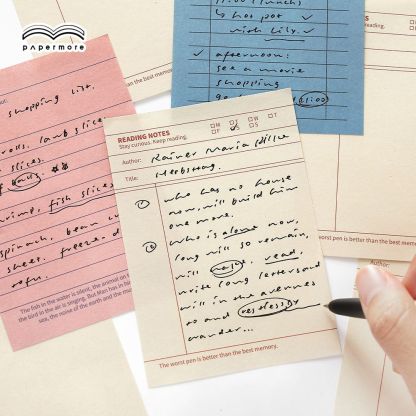 papermore
11:00 (lunch)
↳ hot pot ✓
with Lily. ✓
✓ afternoon:
see a movie
shopping
shopping list.
lamb slice
slices.
shrimp, fish slices
spinach, bean
tofu.
The fish in the water is silent, the animal on
the bird in the air is singing. But Man has in
sea, the noise of the earth and the
the worst pen is better than the best memory.
READING NOTES
Stay curious. Keep reading.
□M □T □W □T
□F □S □S
Author: Rainer Maria Rilke
Title: Herbsttag
① who has no house
now, will build him
one more.
② Who is alone now,
long will so remain,
will wake, read,
write long letters and
will in the avenues
to and restlessly
wander...
The worst pen is better than the best memory.
reading.
The worst pen is better than the best memory.
Author: